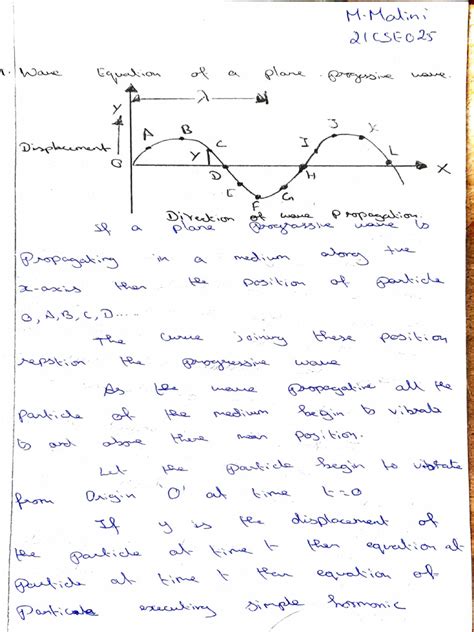 M. Malini
21CSE025
1. Wave Equation of a plane progressive wave.
Y λ
Displacement
A B C Y D E F G H I J K L X
O
Direction of wave Propagation.
If a plane progressive wave is
Propagating in a medium along +ve
x-axis then the position of particle
O, A, B, C, D....
The curve joining these position
repstion the progressive wave
As the wave propagative all the
Particle of the medium begin to vibrate
to and above there mean position.
Let the particle begin to vibrate
from Origin 'O' at time t=0
If y is the displacement of
the particle at time t then equation at
particle at time t then equation of
Particle executing simple hormonic